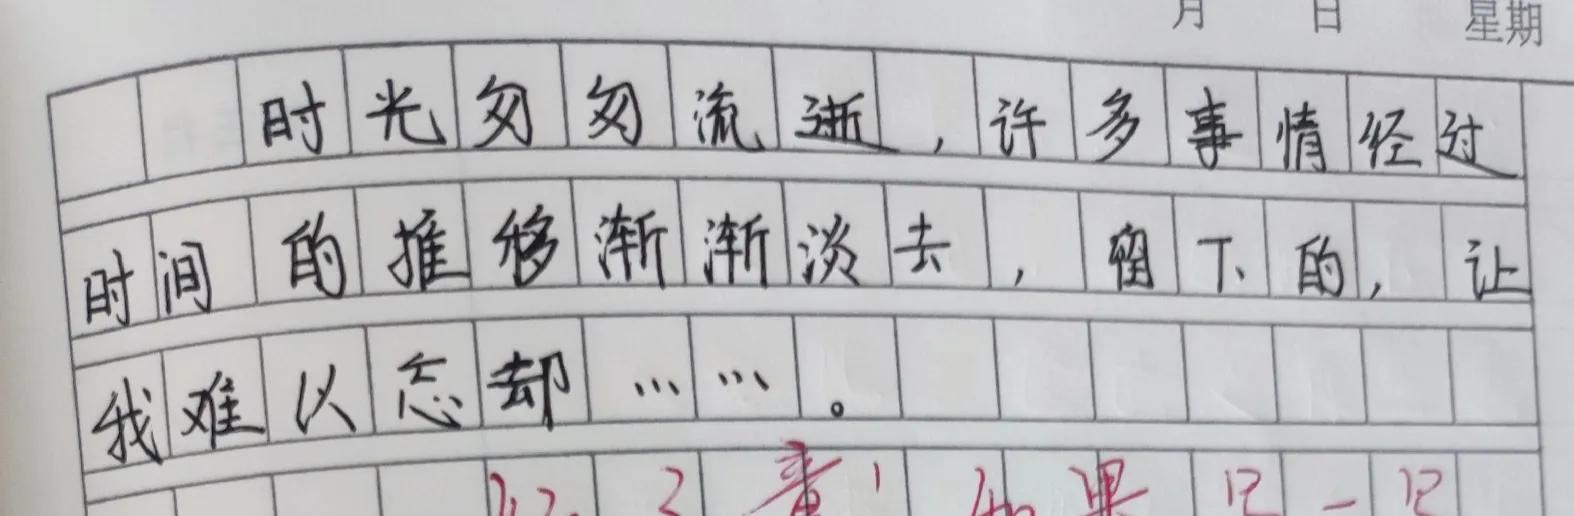 月 日 星期
时光匆匆流逝,许多事情经过
时间的推移渐渐淡去,留下的,让
我难以忘却……。